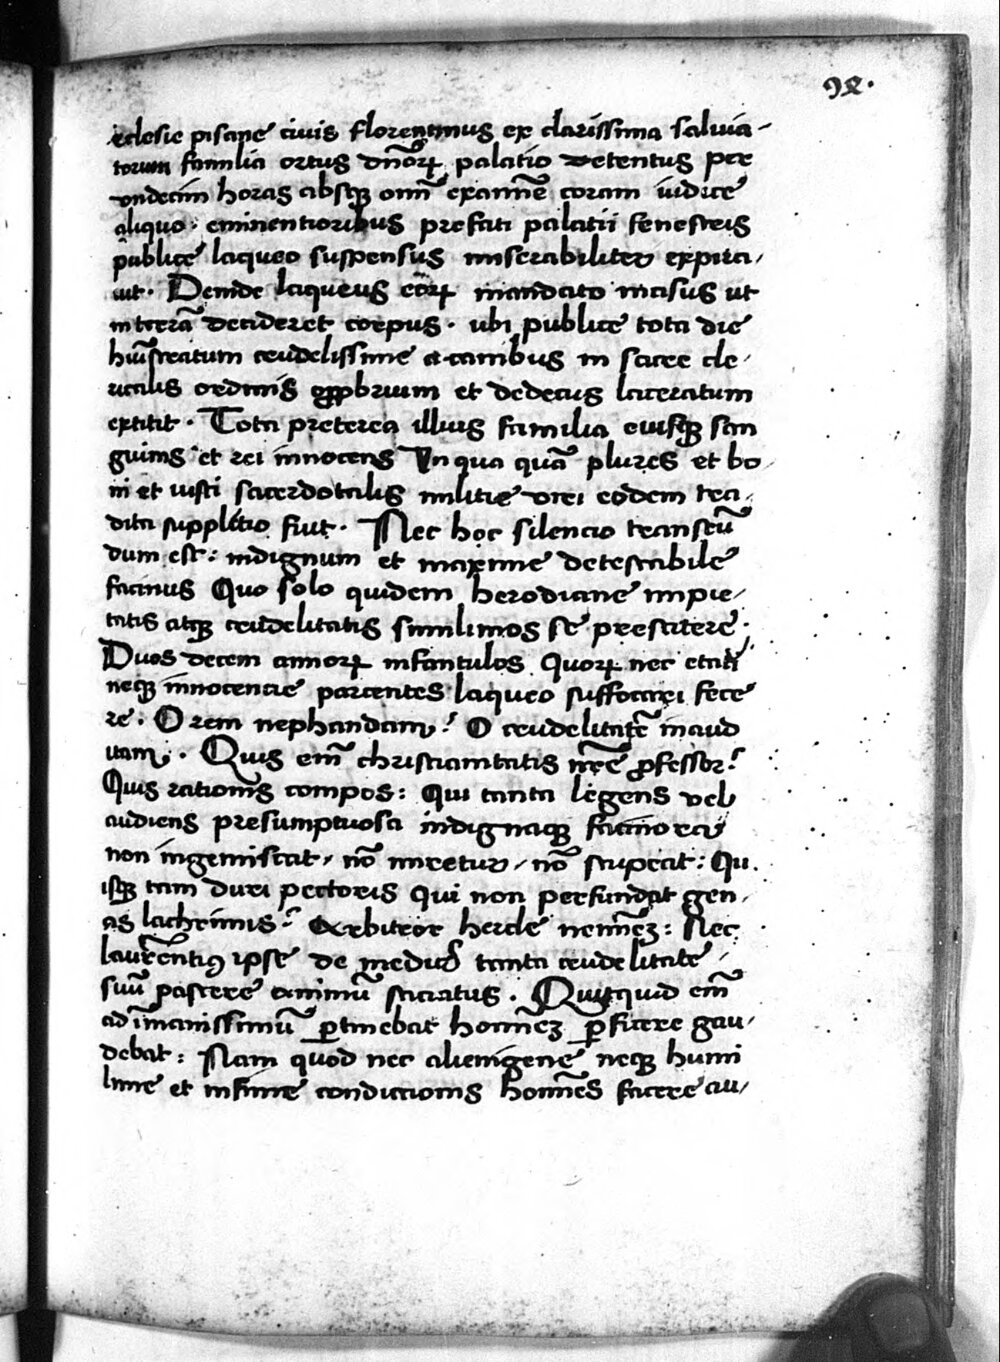 92.
eclesie pisane civis florentinus ex clarissima salvia-
torum familia ortus dñorꝝ palatio detentus per
undecim horas absqꝫ omī examinē coram iudice
aliquo: eminentioribus prefati palatii fenestris
publice laqueo suspensus miserabiliter expira/
uit. Deinde laqueus eorꝝ mandato incisus ut
in terrā decideret corpus. ubi publice tota die
crudelissime a canibus in sacre cle/
ricalis ordinis opprobrium et dedecus laceratum
extitit. Tota preterea illius familia eiusqꝫ san
guinis et rei innocens In qua quā plures et bo
ni et iusti sacerdotalis militie viri eodem tra/
dita supplitio fiut. Nec hoc silencio transeū
dum est: indignum et maxime detestabile
facinus Quo solo quidem herodiane impie/
tatis atqꝫ crudelitatis simlimos se prestitere:
Duos decem annorꝝ infantulos Quorꝝ nec etati
neqꝫ innocencie parcentes laqueo suffocari fece
re. O rem nephandam! O crudelitatē inaud
itam. Quis eīn christianitatis nr̄e ꝓfessor?
Quis rationis compos: Qui tanta legens vel
audiens presumptuosa indignaqꝫ facinora
non ingemiscat, nō miretur, nō stupeat: Qu
isqꝫ tam duri pectoris qui non perfundat gen/
as lachrimis? Arbitror hercle neminēꝫ: Nec
laurēntius ipse de mediꝯ tanta crudelitate
suū pascere animū saciatus. Quitquid eīn
ad īmanissimū ꝑtinebat homīneꝫ ꝑficere gau/
debat: Nam quod nec alienigene neqꝫ humi
lime et infime condicionis homīnes facere au/